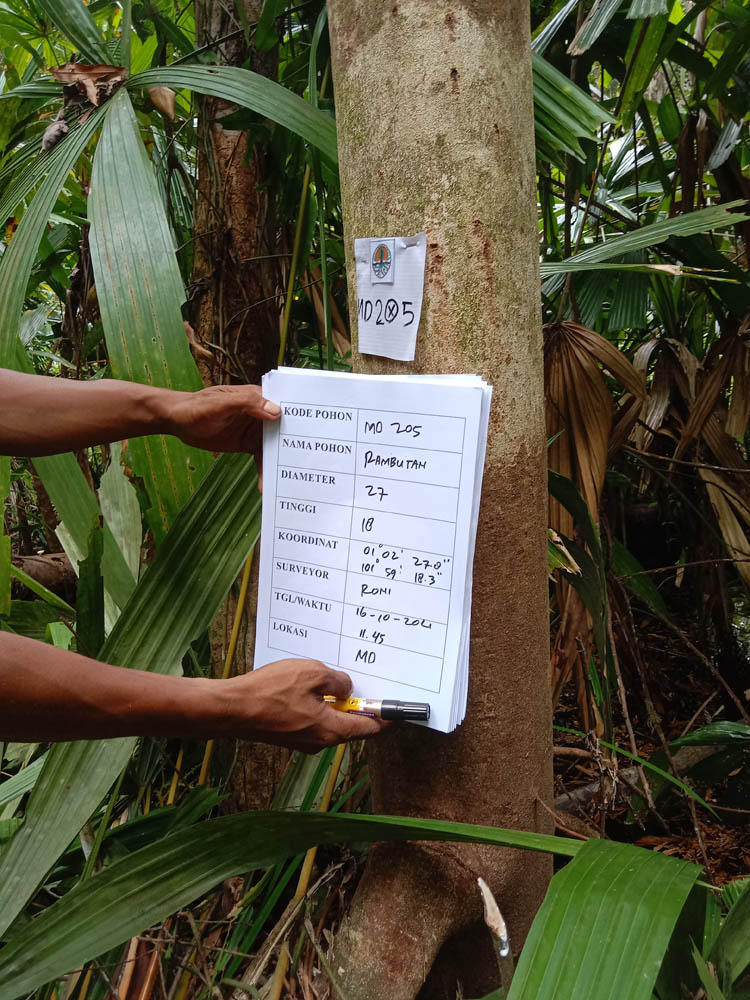 MD 205
KODE POHON MD 205
NAMA POHON RAMBUTAN
DIAMETER 27
TINGGI 18
KOORDINAT 01°02' 27.0"
101° 59' 18.3"
SURVEYOR RONI
TGL/WAKTU 16-10-2021
11.45
LOKASI MD